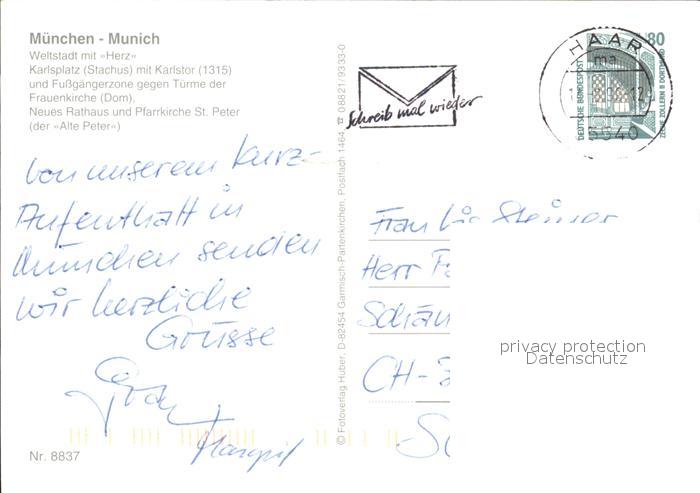 München - Munich
Weltstadt mit »Herz«
Karlsplatz (Stachus) mit Karlstor (1315)
und Fußgängerzone gegen Türme der
Frauenkirche (Dom),
Neues Rathaus und Pfarrkirche St. Peter
(der »Alte Peter«)
von unserem Kurz-
Aufenthalt in
München senden
wir herzliche
Grüsse
Margrit
Nr. 8837
© Fotoverlag Huber, D-82454 Garmisch-Partenkirchen, Postfach 1464 ☎ 08821/9333-0
Schreib mal wieder
HAAR
ma
8540
80
DEUTSCHE BUNDESPOST
ZECHE ZOLLERN II DORTMUND
Frau
Herr
CH-
privacy protection
Datenschutz